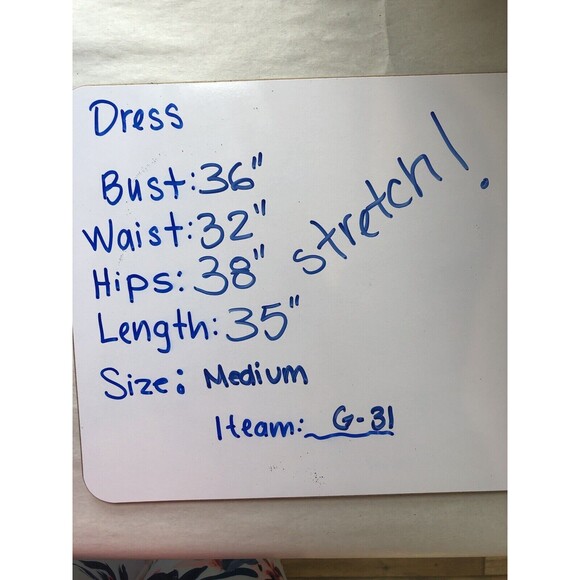 Dress
Bust: 36"
Waist: 32"
Hips: 38"
Length: 35"
stretch!
Size: Medium
Iteam: G-31